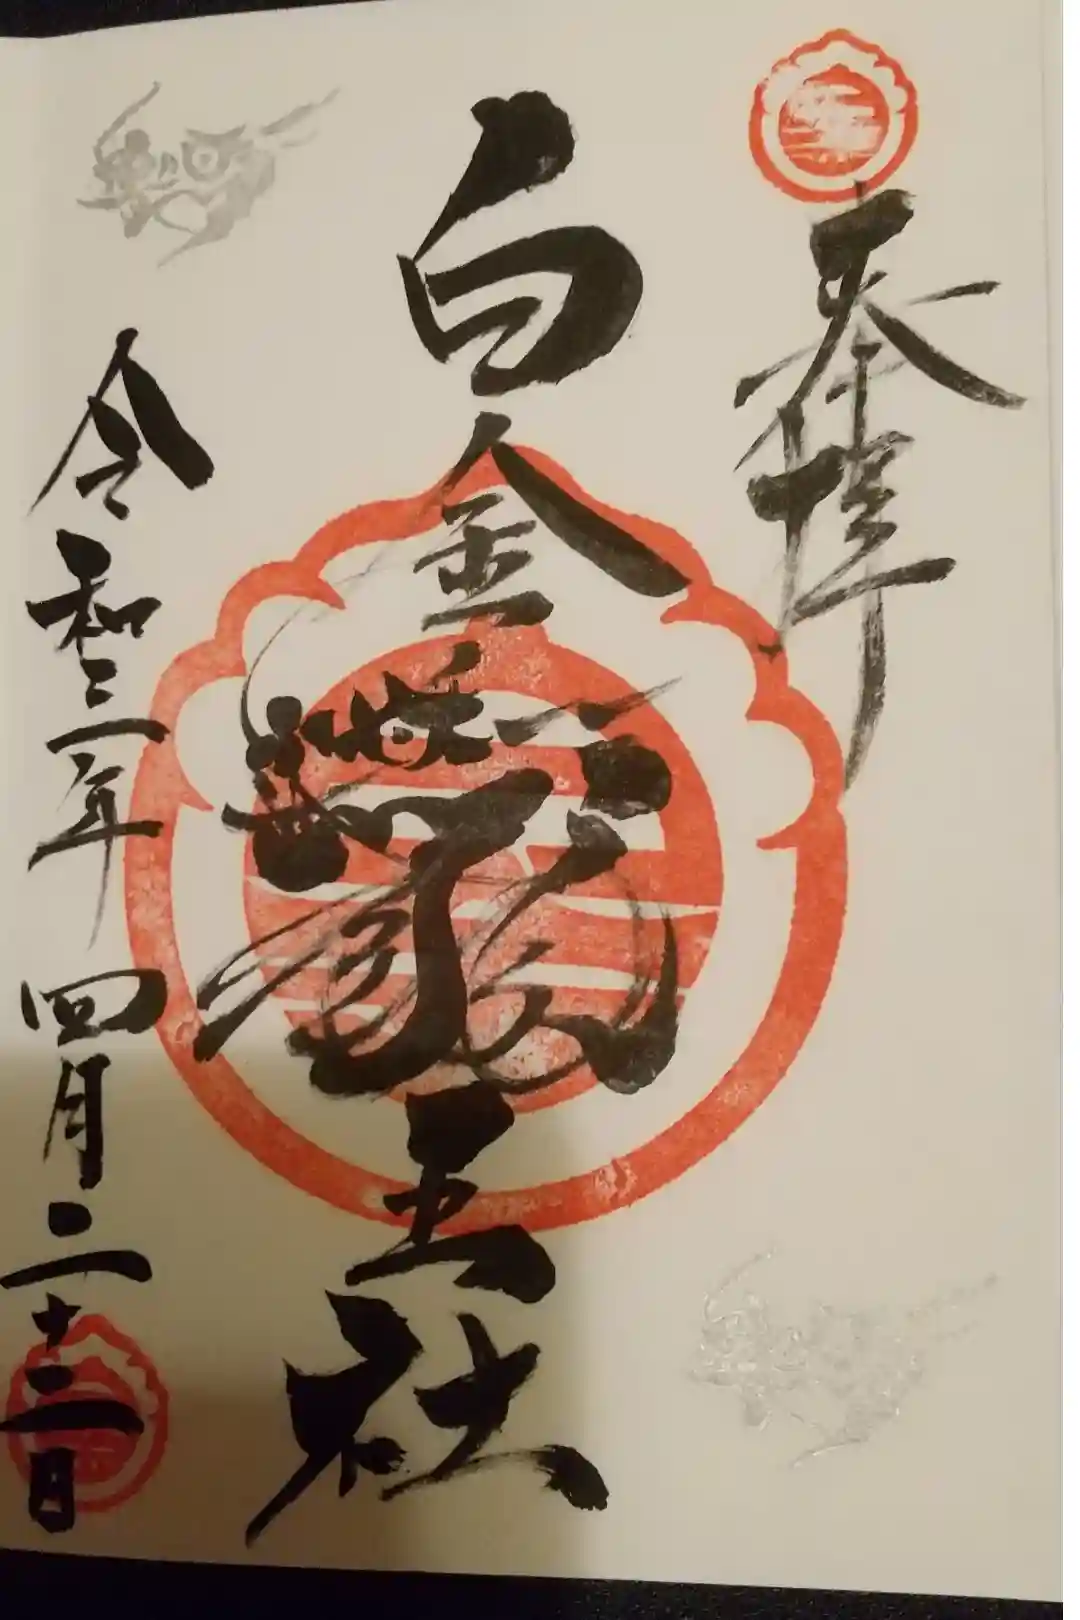 奉拝
白金龍王社
令和三年四月二十三日